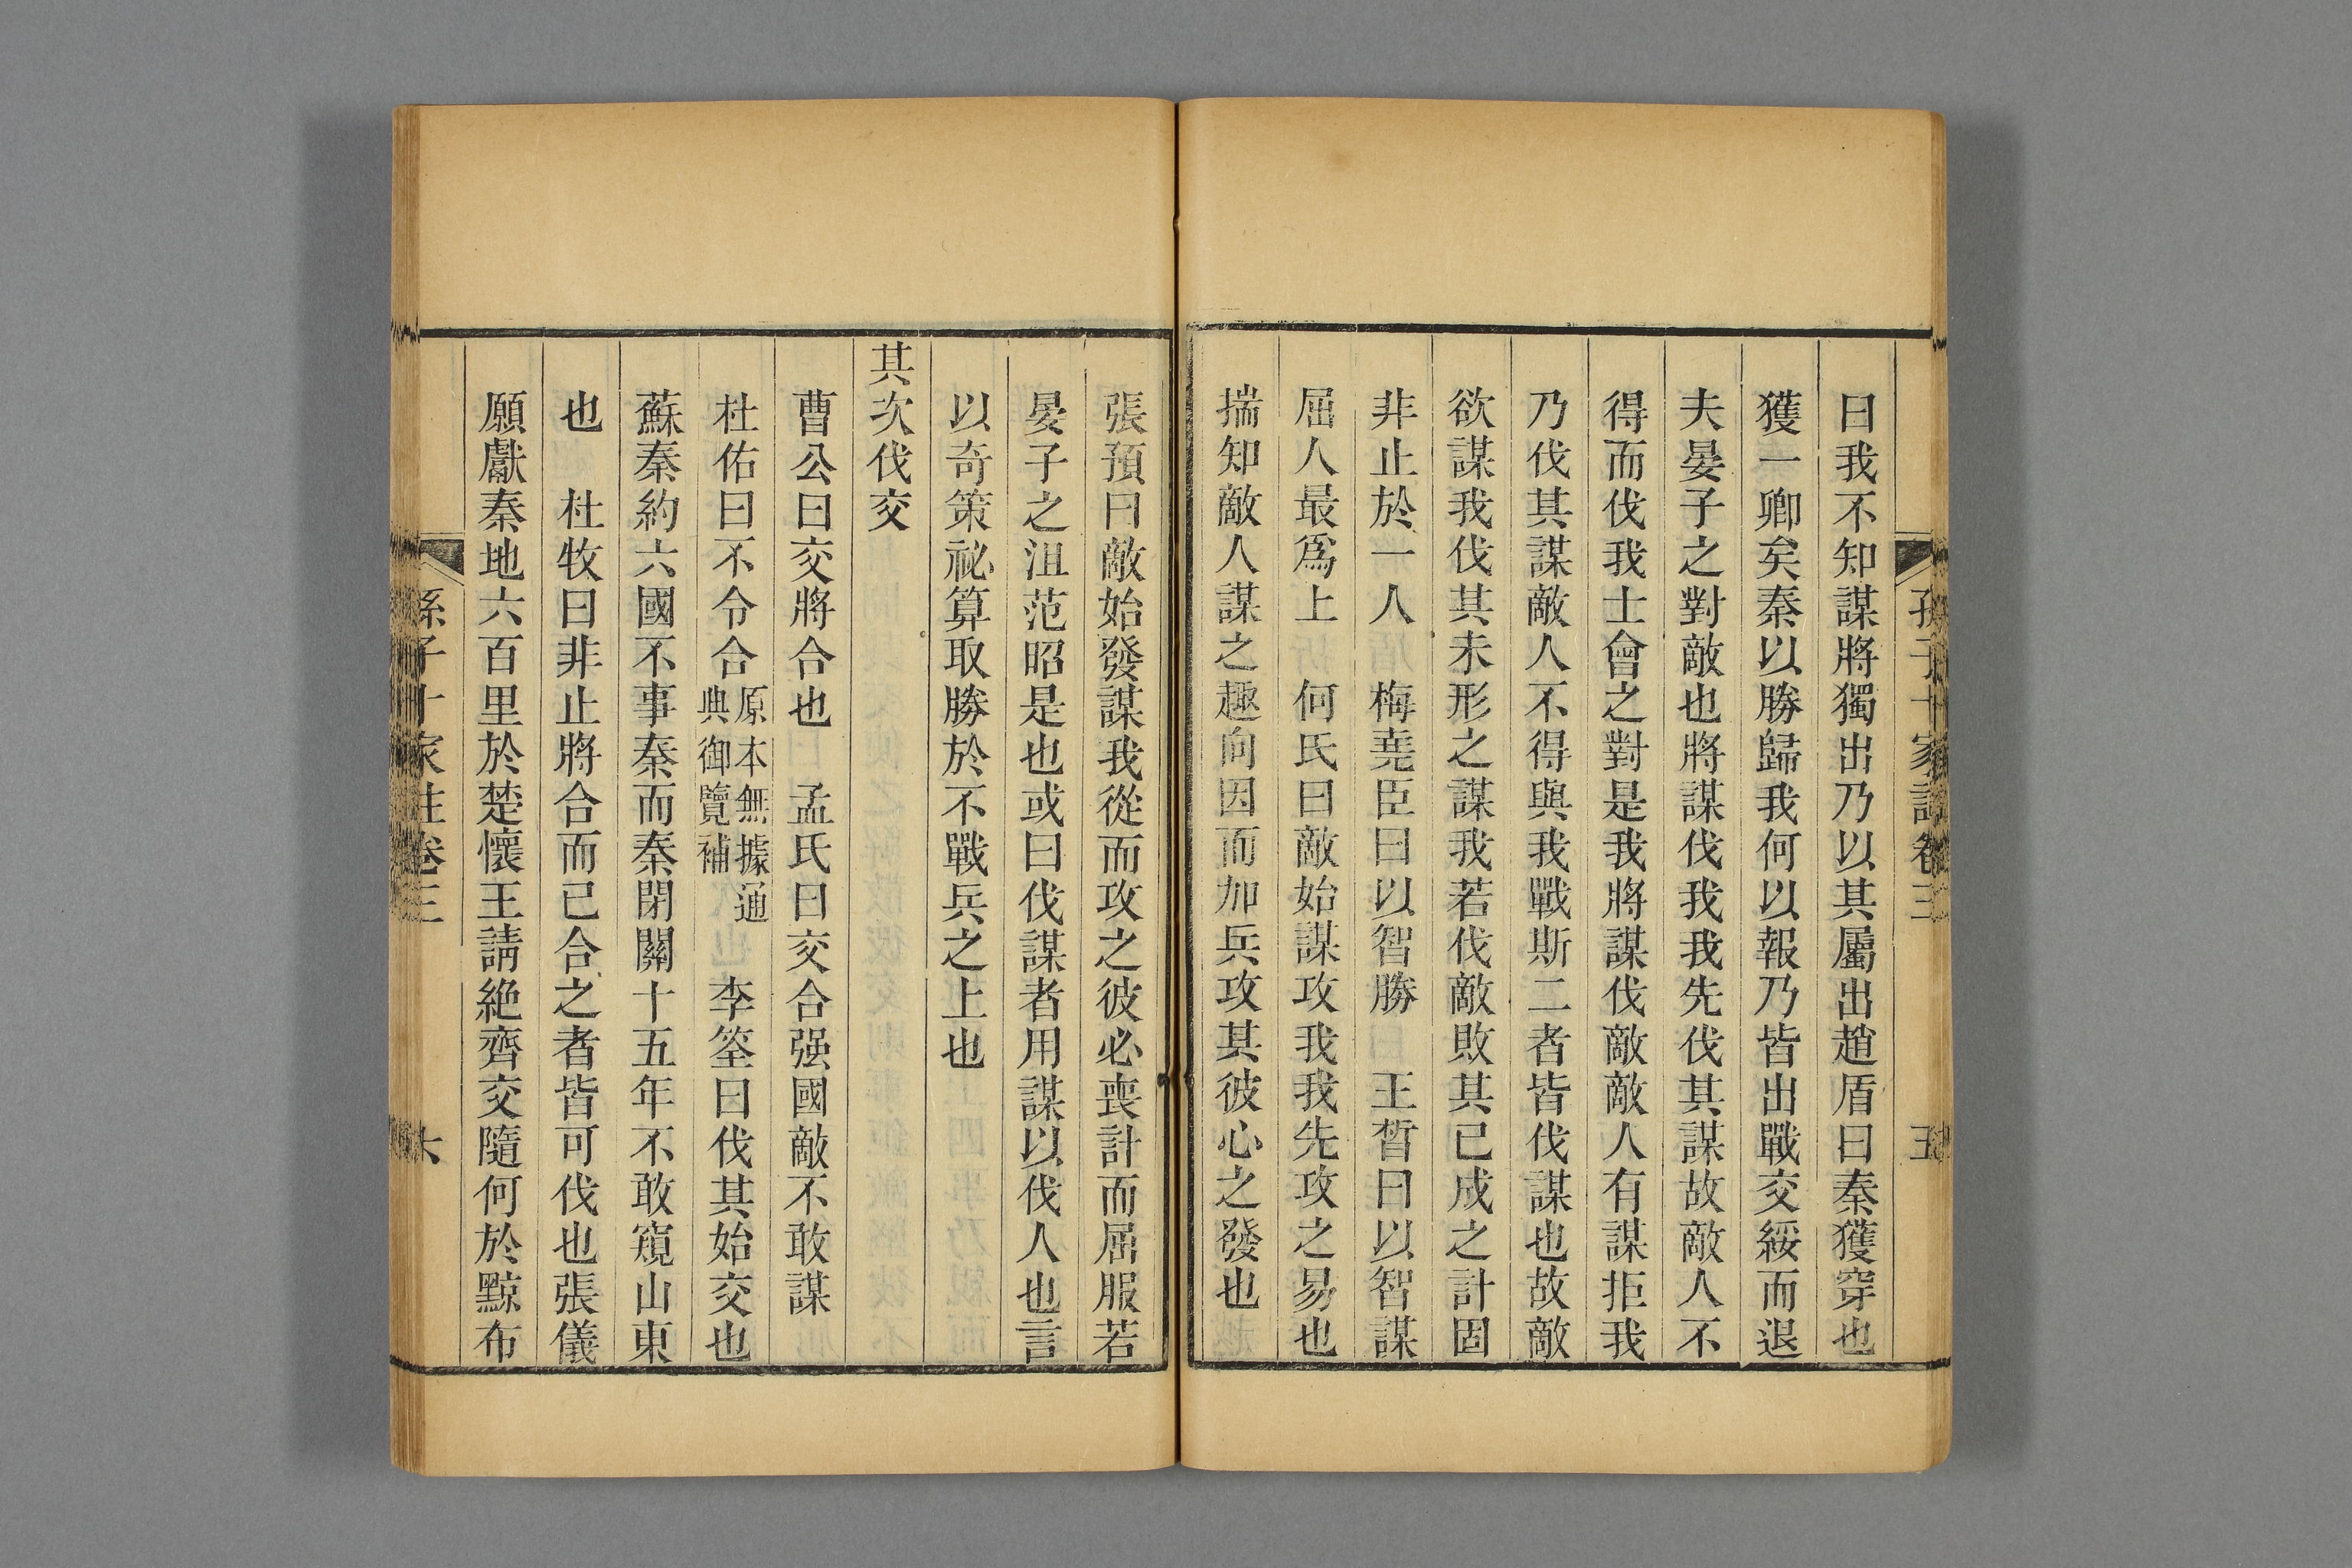 孫子十家註卷三 五
曰我不知謀將獨出乃以其屬出趙盾曰秦獲穿也
獲一卿矣秦以勝歸我何以報乃皆出戰交綏而退
夫晏子之對敵也將謀伐我我先伐其謀故敵人不
得而伐我士會之對是我將謀伐敵敵人有謀拒我
乃伐其謀敵人不得與我戰斯二者皆伐謀也故敵
欲謀我伐其未形之謀我若伐敵敗其已成之計固
非止於一人 梅堯臣曰以智勝 王晳曰以智謀
屈人最爲上 何氏曰敵始謀攻我我先攻之易也
揣知敵人謀之趣向因而加兵攻其彼心之發也
張預曰敵始發謀我從而攻之彼必喪計而屈服若
晏子之沮范昭是也或曰伐謀者用謀以伐人也言
以奇策祕算取勝於不戰兵之上也
其次伐交
曹公曰交將合也 孟氏曰交合强國敵不敢謀
杜佑曰不令合原本無據通典御覽補 李筌曰伐其始交也
蘇秦約六國不事秦而秦閉關十五年不敢窺山東
也 杜牧曰非止將合而已合之者皆可伐也張儀
願獻秦地六百里於楚懷王請絶齊交隨何於黥布
孫子十家註卷三 六